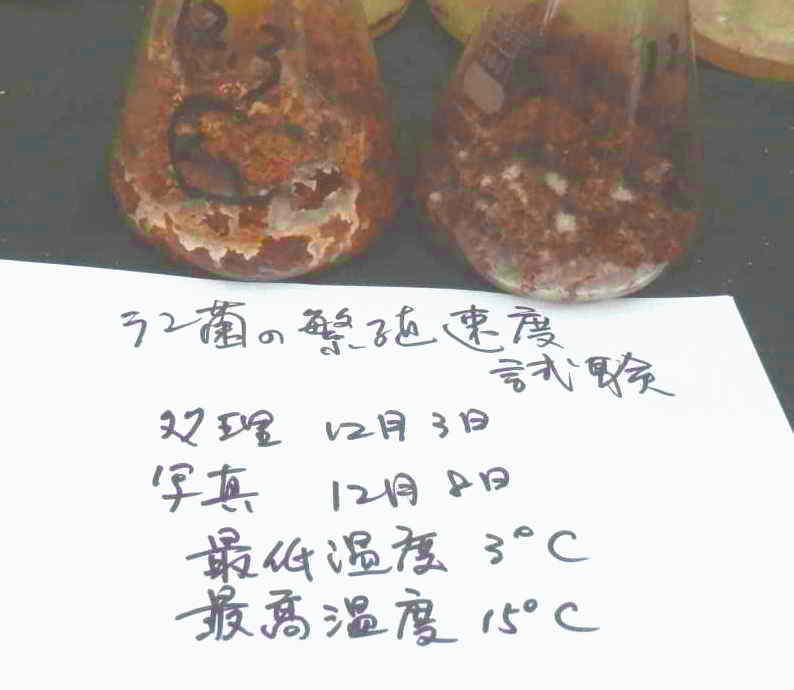 ラン菌の繁殖速度
試験
処理 12月3日
写真 12月8日
最低温度 3°C
最高温度 15°C